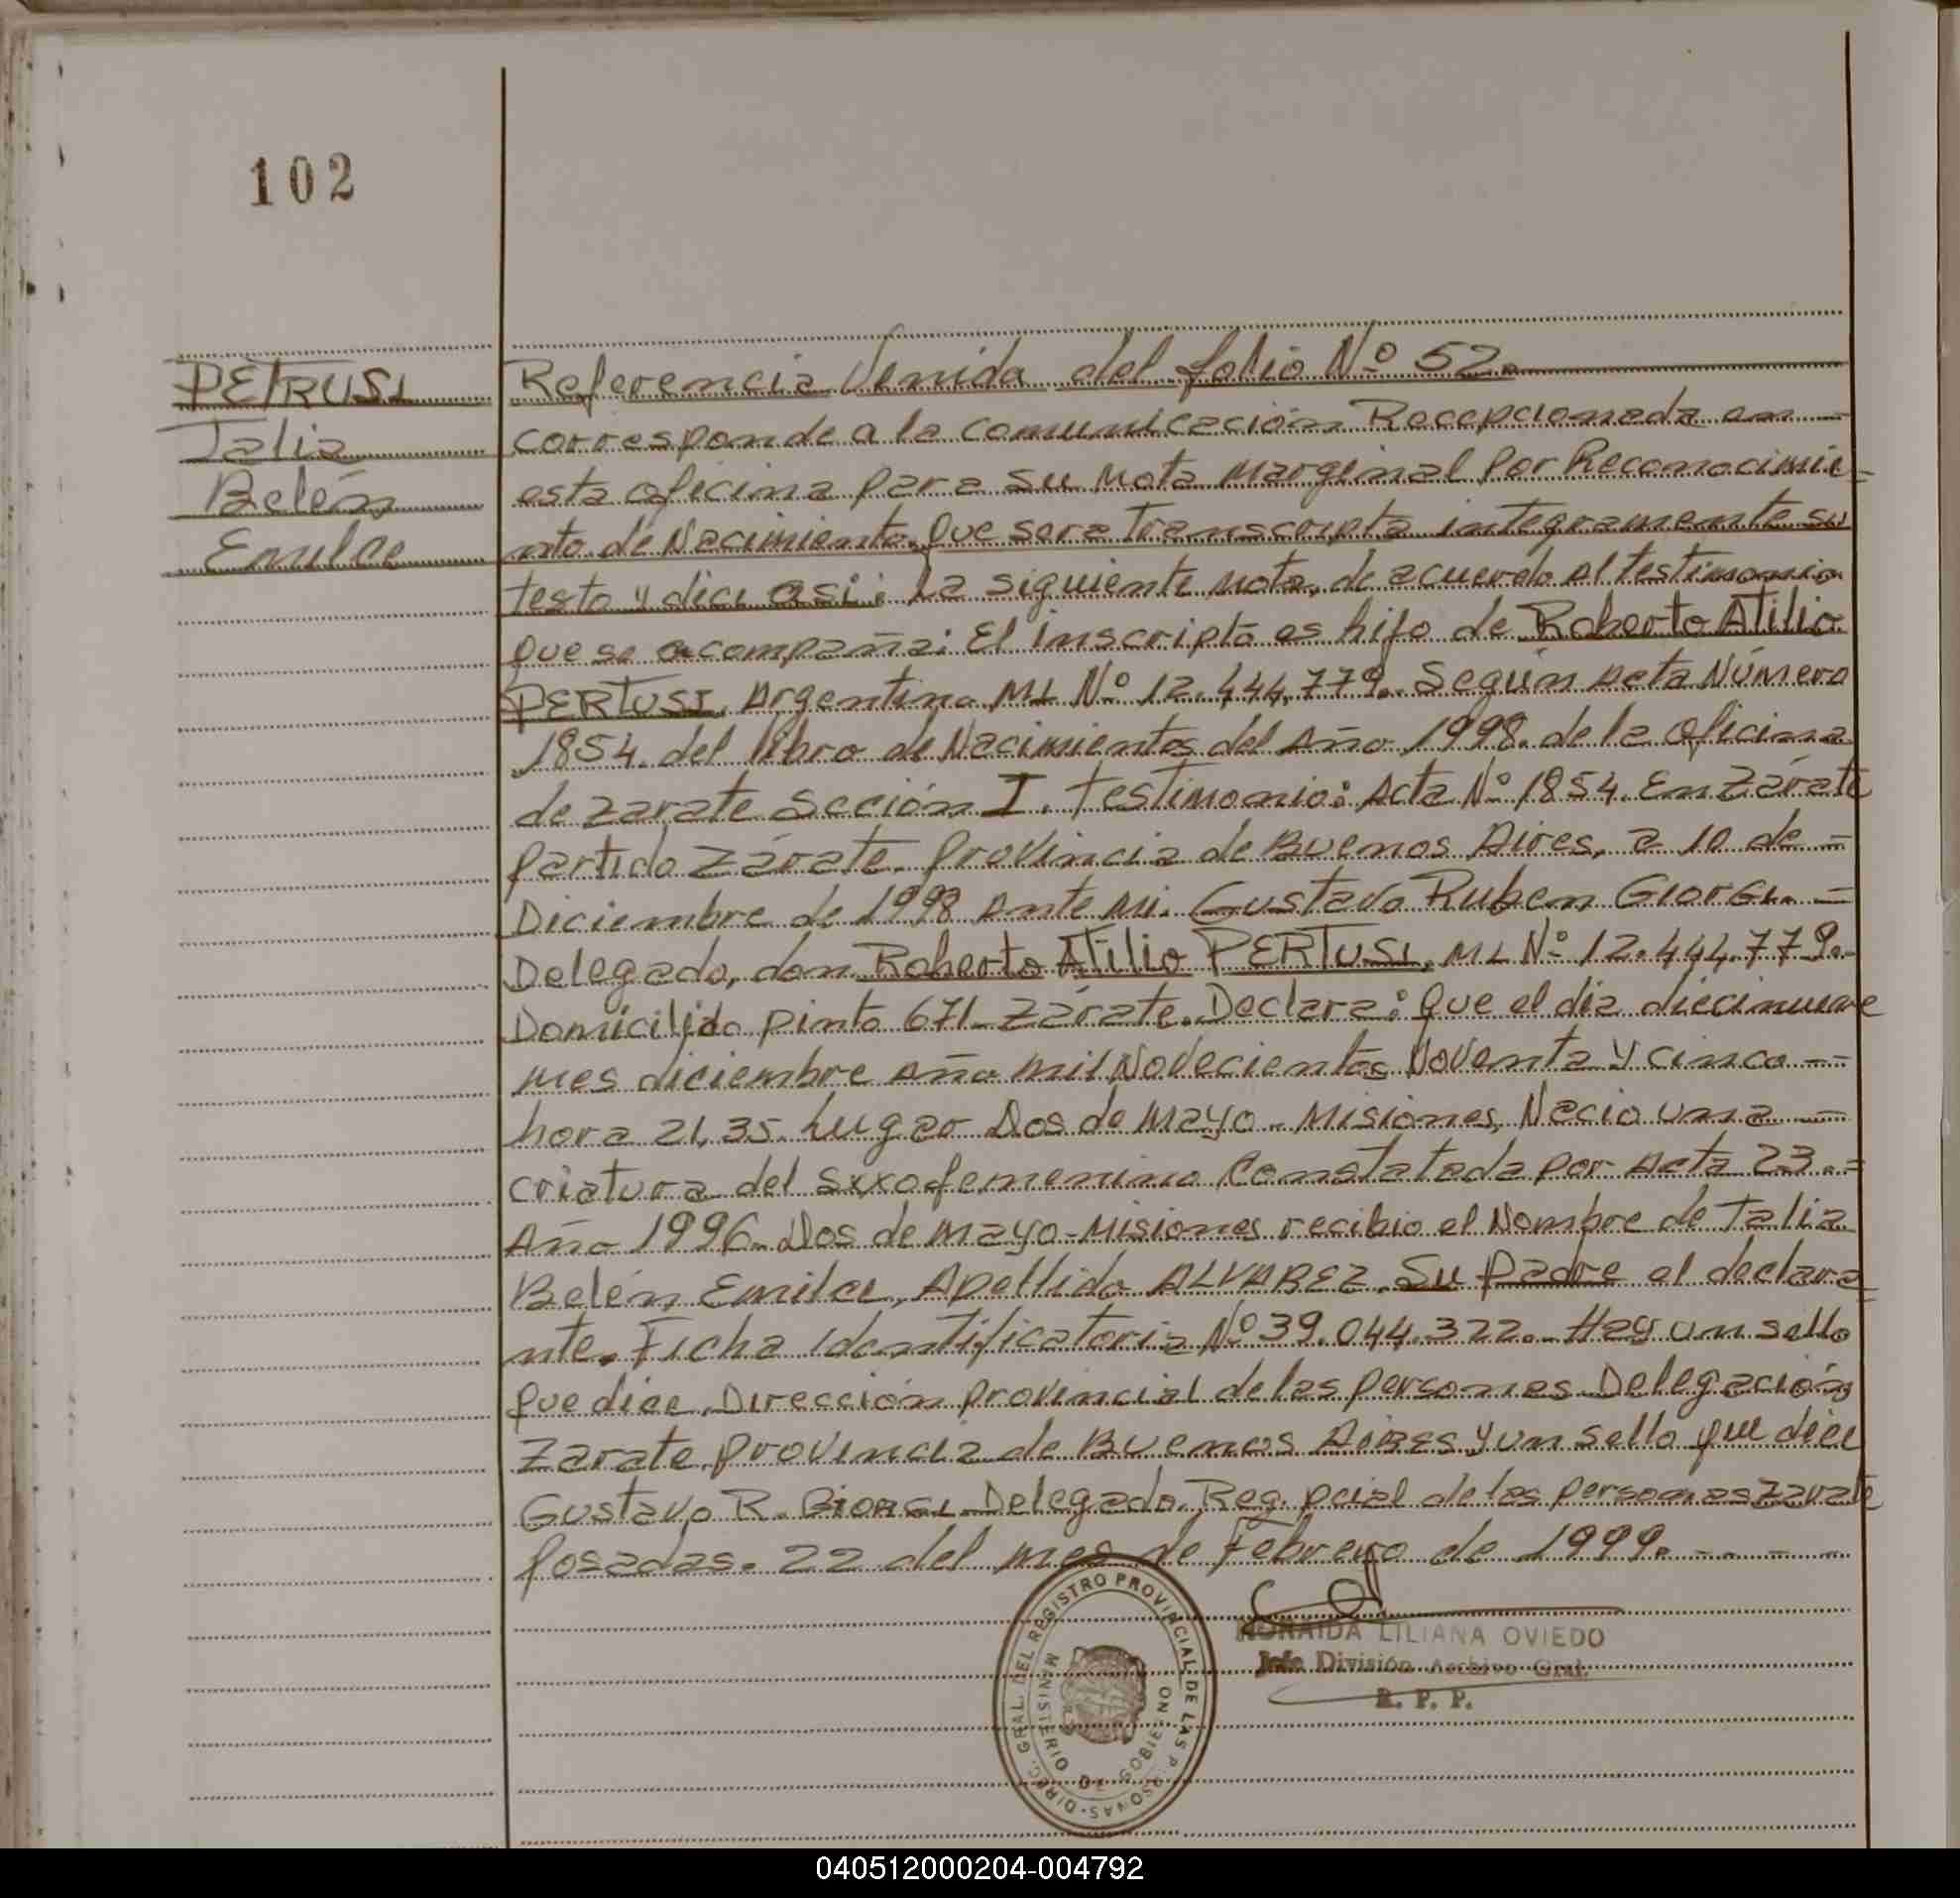 102
PETRUSI
Talia
Belén
Emilce
Referencia Venida del folio Nº 52.
corresponde a la comunicación Recepcionada en =
esta oficina para su Nota Marginal por Reconocimie-
nto de Nacimiento. Que sera Transcripta integramente su
testo y dice asi: La siguiente nota, de acuerdo al testimonio
que se acompaña: El inscripto es hijo de Roberto Atilio
PERTUSI, Argentino MI Nº 12.444.779. Según Acta Número
1854. del libro de Nacimientos del Año 1998. de la oficina
de Zarate Scción I. Testimonio: Acta Nº 1854. En Zárate
partido Zárate. provincia de Buenos Aires, a 10 de =
Diciembre de 1998 Ante mi. Gustavo Ruben GIORGI. =
Delegado, don Roberto Atilio PERTUSI, MI Nº 12.444.779.-
Domicilido pinto 671- Zárate. Declara: Que el dia diecinueve
mes diciembre Año mil Novecientos Noventa y cinco --
hora 21,35. Lugar Dos de Mayo - Misiones, Nacio una =
criatura del sxxofemenino Constatada por Acta 23.=
Año 1996. Dos de mayo-Misiones recibio el Nombre de Talia
Belén Emilce, Apellido ALVAREZ. Su Padre el declara=
nte. Ficha Identificatoria Nº 39.044.322.- Hay un sello
que dice, Dirección provincial de las personas Delegación
Zarate, provincia de Buenos Aires y un sello que dice
Gustavo R. GIORGI Delegado. Reg. pcial de las personas Zarate
posadas. 22 del mes de Febrero de 1999. - - - -
DIREC. GRAL. DEL REGISTRO PROVINCIAL DE LAS P RSONAS-
MINISTERIO DE GOBIERNO
LILIANA OVIEDO
Jefe División Archivo Gral.
R. P. P.
040512000204-004792